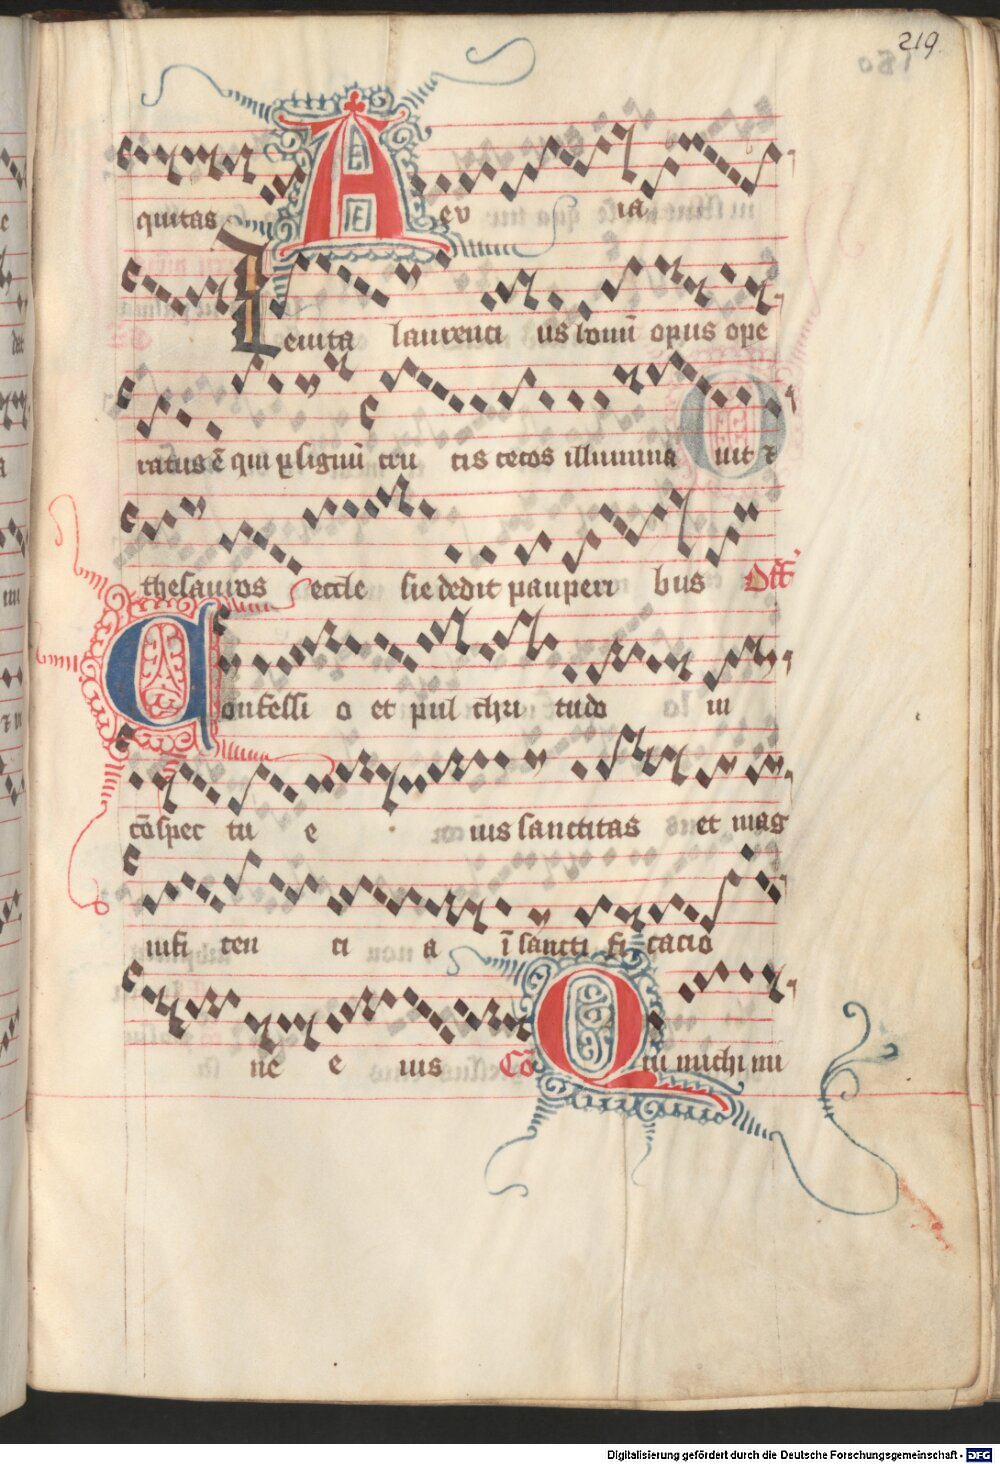 219
quitas A ev ia
Leuita laurenci us bonū opus ope
ratus ē qui ꝑ signū cru cis cecos illumina uit ⁊
thesauros eccle sie dedit pauperi bus Off̄
Confessi o et pul chri tudo in
cōspec tu e ius sanctitas et mag
nifi cen ci a ī sancti fi cacio
ne e ius Cō Qui michi mi
Digitalisierung gefördert durch die Deutsche Forschungsgemeinschaft - DFG